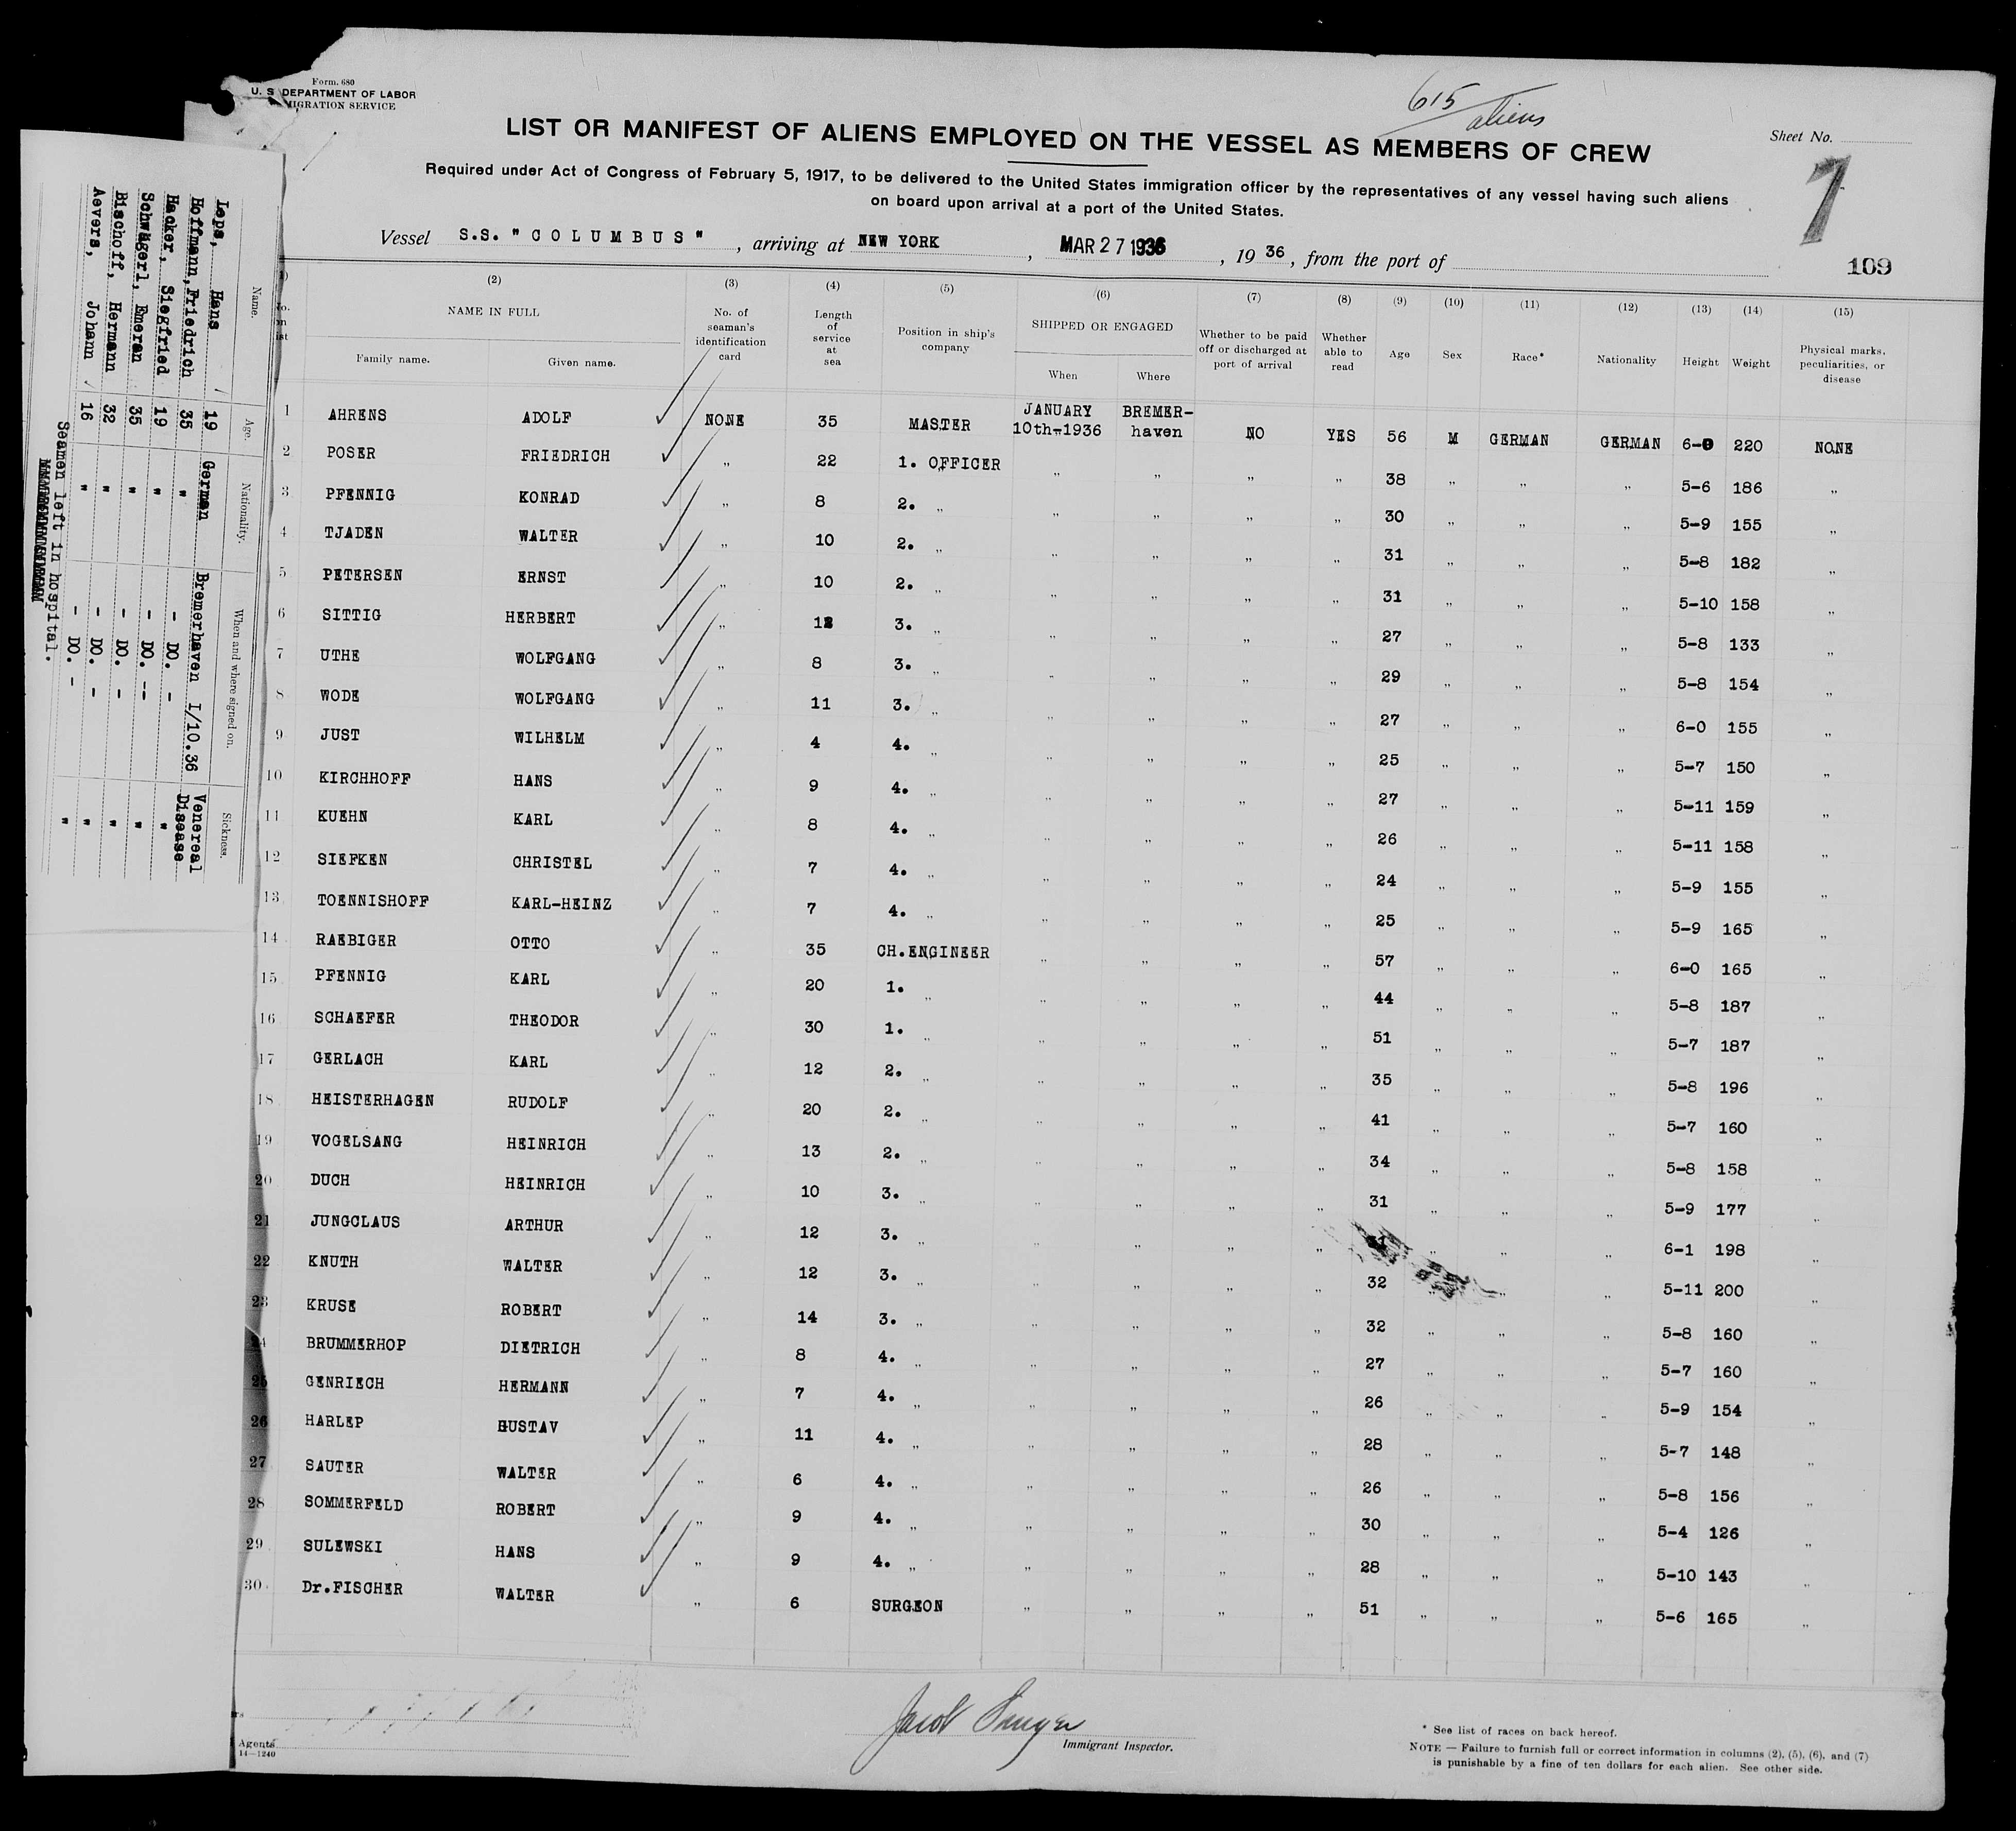 Form. 680
U. S. DEPARTMENT OF LABOR
MIGRATION SERVICE
615 aliens
LIST OR MANIFEST OF ALIENS EMPLOYED ON THE VESSEL AS MEMBERS OF CREW
Sheet No.
1
Required under Act of Congress of February 5, 1917, to be delivered to the United States immigration officer by the representatives of any vessel having such aliens
on board upon arrival at a port of the United States.
Vessel S.S. "COLUMBUS", arriving at NEW YORK, MAR 27 1936, 1936, from the port of
109
(2) (3) (4) (5) (6) (7) (8) (9) (10) (11) (12) (13) (14) (15)
NAME IN FULL
Family name. Given name.
No. of seaman's identification card
Length of service at sea
Position in ship's company
SHIPPED OR ENGAGED
When Where
Whether to be paid off or discharged at port of arrival
Whether able to read
Age Sex Race* Nationality Height Weight
Physical marks, peculiarities, or disease
1 AHRENS ADOLF NONE 35 MASTER JANUARY 10th-1936 BREMER-haven NO YES 56 M GERMAN GERMAN 6-0 220 NONE
2 POSER FRIEDRICH " 22 1. OFFICER " " " " 38 " " " 5-6 186 "
3 PFENNIG KONRAD " 8 2. " " " " " 30 " " " 5-9 155 "
4 TJADEN WALTER " 10 2. " " " " " 31 " " " 5-8 182 "
5 PETERSEN ERNST " 10 2. " " " " " 31 " " " 5-10 158 "
6 SITTIG HERBERT " 3. " " " " " 27 " " " 5-8 133 "
7 UTHE WOLFGANG " 8 3. " " " " " 29 " " " 5-8 154 "
8 WODE WOLFGANG " 11 3. " " " " " 27 " " " 6-0 155 "
9 JUST WILHELM " 4 4. " " " " " 25 " " " 5-7 150 "
10 KIRCHHOFF HANS " 9 4. " " " " " 27 " " " 5-11 159 "
11 KUEHN KARL " 8 4. " " " " " 26 " " " 5-11 158 "
12 SIEFKEN CHRISTEL " 7 4. " " " " " 24 " " " 5-9 155 "
13 TOENNISHOFF KARL-HEINZ " 7 4. " " " " " 25 " " " 5-9 165 "
14 RAEBIGER OTTO " 35 CH.ENGINEER " " " " 57 " " " 6-0 165 "
15 PFENNIG KARL " 20 1. " " " " " 44 " " " 5-8 187 "
16 SCHAEFER THEODOR " 30 1. " " " " " 51 " " " 5-7 187 "
17 GERLACH KARL " 12 2. " " " " " 35 " " " 5-8 196 "
18 HEISTERHAGEN RUDOLF " 20 2. " " " " " 41 " " " 5-7 160 "
19 VOGELSANG HEINRICH " 13 2. " " " " " 34 " " " 5-8 158 "
20 DUCH HEINRICH " 10 3. " " " " " 31 " " " 5-9 177 "
21 JUNGCLAUS ARTHUR " 12 3. " " " " " " " " 6-1 198 "
22 KNUTH WALTER " 12 3. " " " " " 32 " " " 5-11 200 "
23 KRUSE ROBERT " 14 3. " " " " " 32 " " " 5-8 160 "
24 BRUMMERHOP DIETRICH " 8 4. " " " " " 27 " " " 5-7 160 "
25 GENRIECH HERMANN " 7 4. " " " " " 26 " " " 5-9 154 "
26 HARLEP GUSTAV " 11 4. " " " " " 28 " " " 5-7 148 "
27 SAUTER WALTER " 6 4. " " " " " 26 " " " 5-8 156 "
28 SOMMERFELD ROBERT " 9 4. " " " " " 30 " " " 5-4 126 "
29 SULEWSKI HANS " 9 4. " " " " " 28 " " " 5-10 143 "
30 Dr.FISCHER WALTER " 6 SURGEON " " " " 51 " " " 5-6 165 "
Agents
14—1240
Jacob
Immigrant Inspector.
* See list of races on back hereof.
NOTE — Failure to furnish full or correct information in columns (2), (5), (6), and (7)
is punishable by a fine of ten dollars for each alien. See other side.
Name. Age. Nationality. When and where signed on. Sickness.
Leps, Hans 19 German Bremerhaven I/10.36 Venereal Disease
Hoffmann, Friedrich 35 " - DO. - "
Hacker, Siegfried 19 " - DO. -- "
Schwägerl, Emeran 35 " - DO. - "
Bischoff, Hermann 32 " - DO. - "
Aevers, Johann 16 " - DO. - "
Seamen left in hospital.